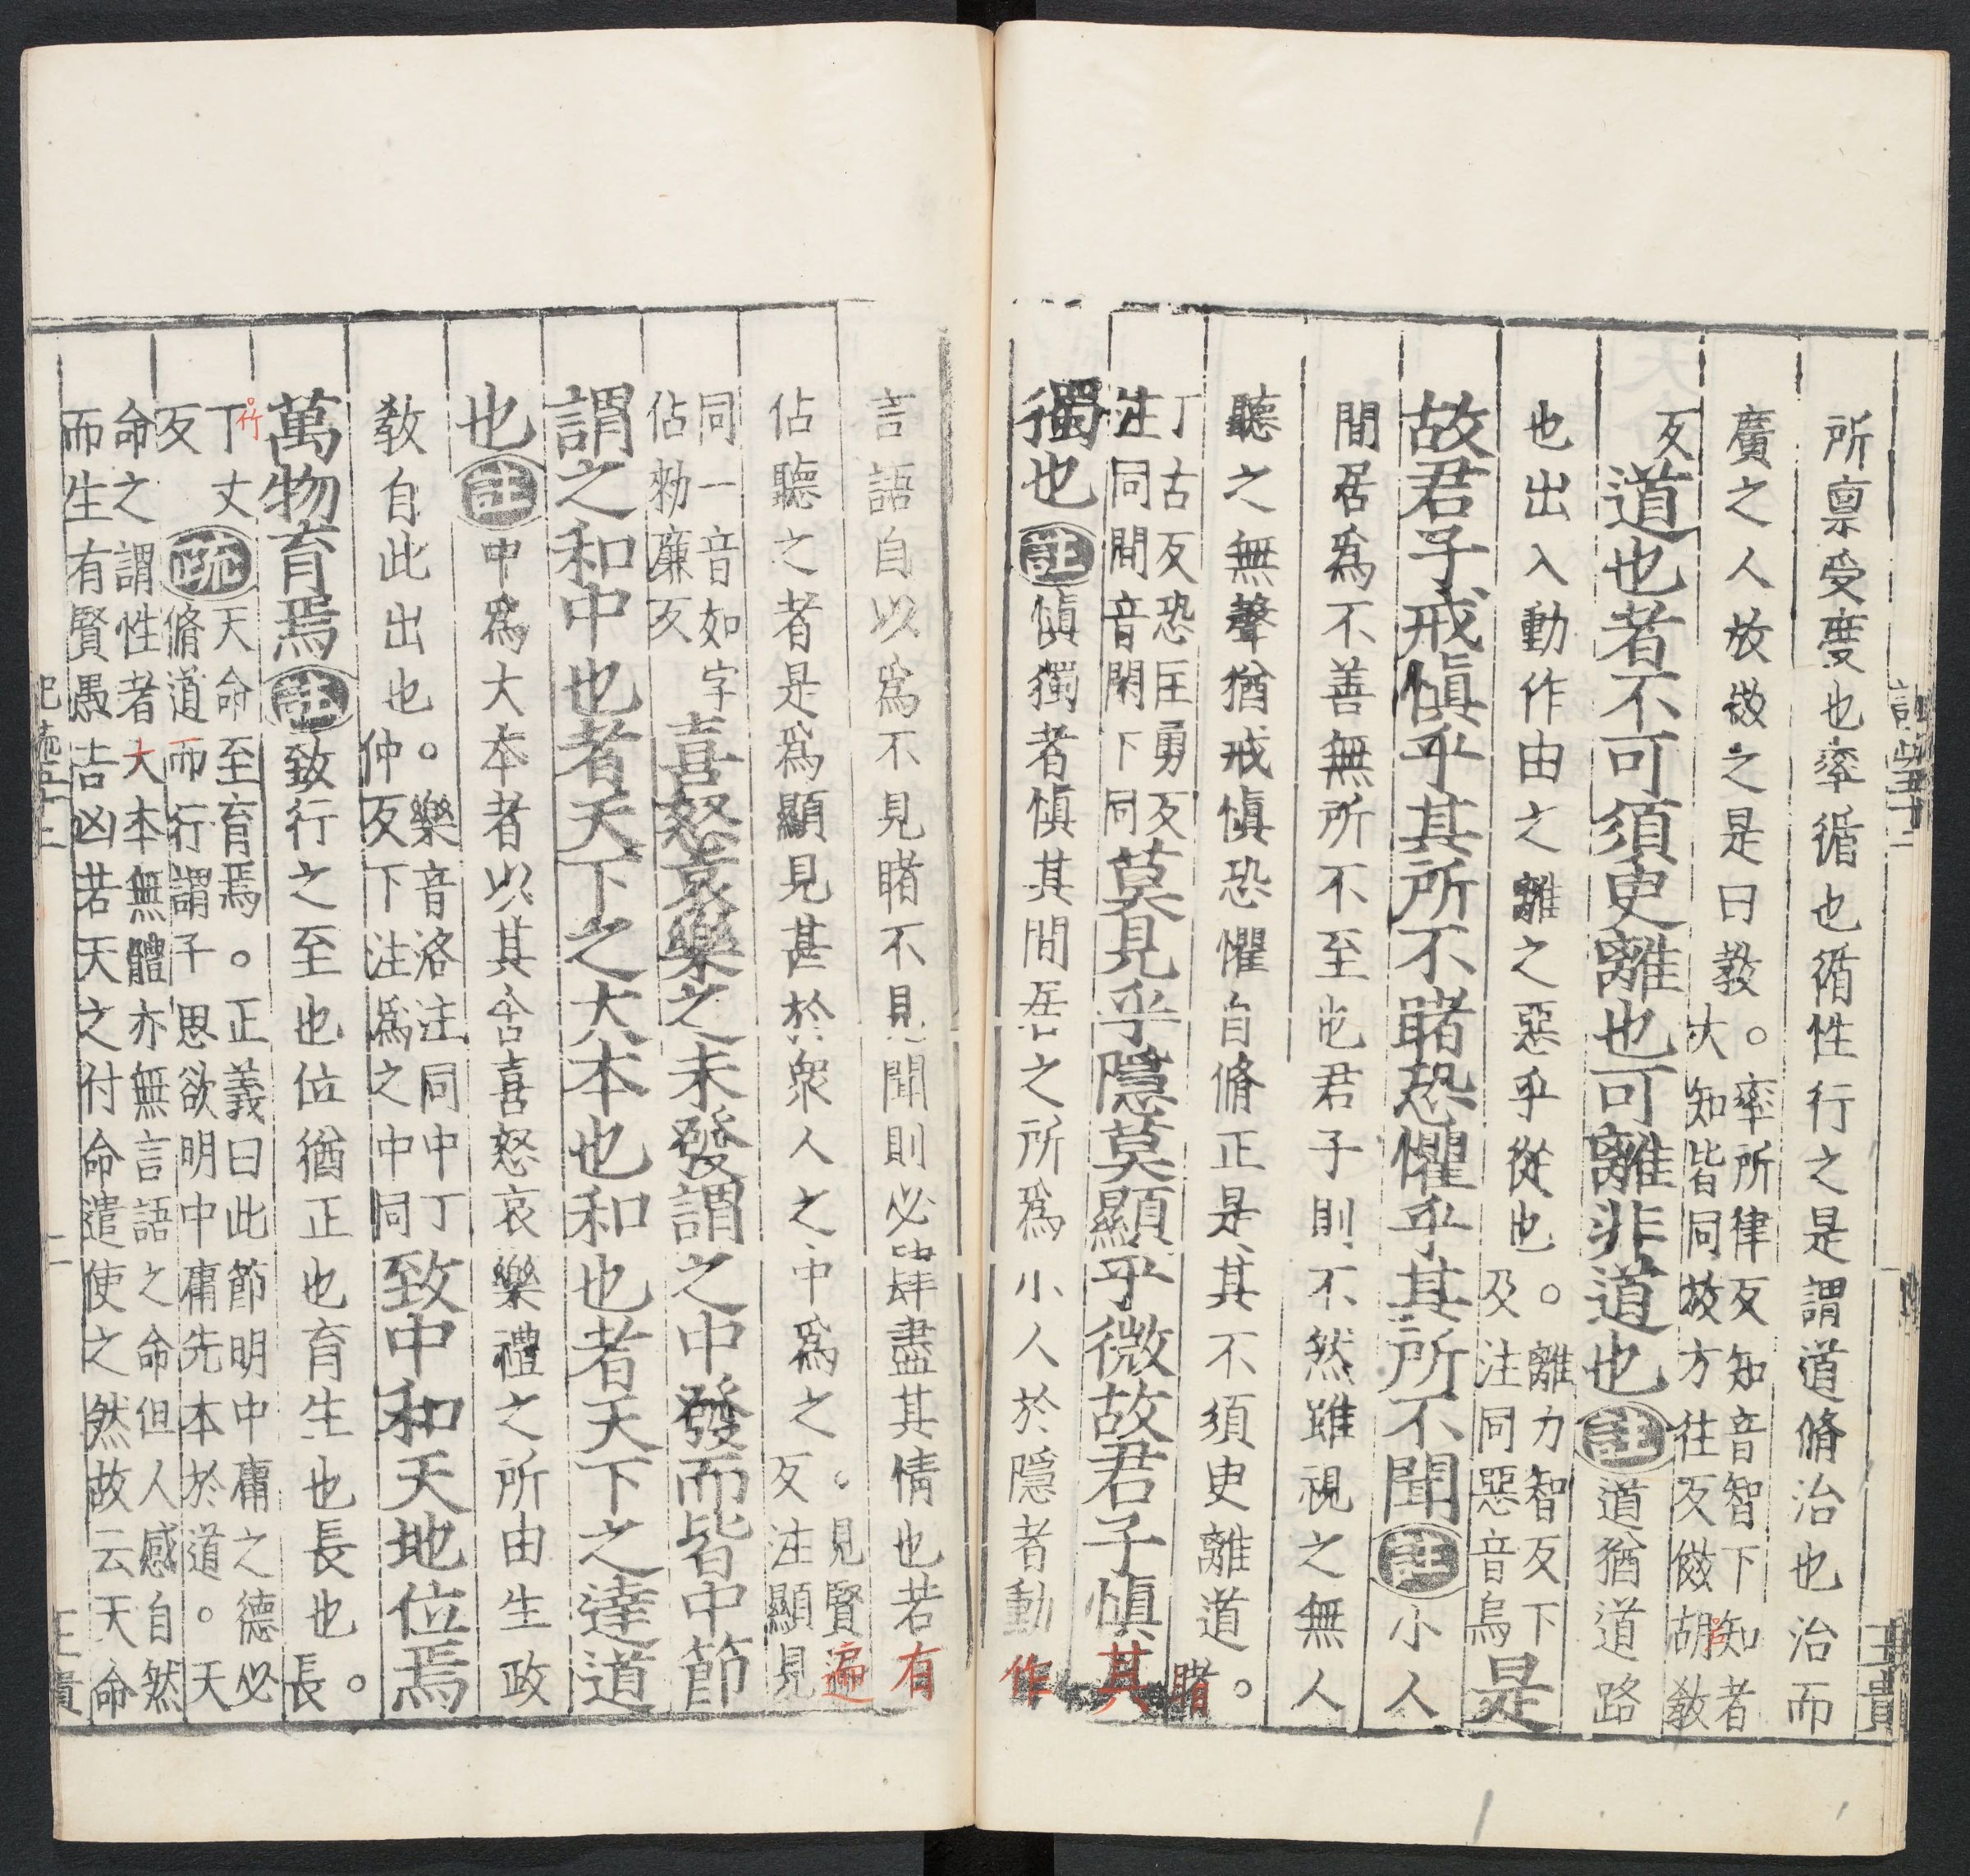 所禀受度也率循也循性行之是謂道脩治也治而
廣之人放傚之是曰教。率所律反知音智下知者
大知皆同放方往反傚胡敎
反道也者不可須臾離也可離非道也註道猶道路
也出入動作由之離之惡乎從也。離力智反下
及注同惡音烏是
故君子戒愼乎其所不睹恐懼乎其所不聞註小人
閒居爲不善無所不至也君子則不然雖視之無人
聽之無聲猶戒愼恐懼自脩正是其不須臾離道。睹
丁古反恐匡勇反
注同閒音閑下同莫見乎隱莫顯乎微故君子愼其
獨也註愼獨者愼其閒居之所爲小人於隱者動作
言語自以爲不見睹不見聞則必肆盡其情也若有
佔聽之者是爲顯見甚於衆人之中爲之。見賢遍
反注顯見
同一音如字
佔勑廉反喜怒哀樂之未發謂之中發而皆中節
謂之和中也者天下之大本也和也者天下之達道
也註中爲大本者以其含喜怒哀樂禮之所由生政
敎自此出也。樂音洛注同中丁
仲反下注爲之中同致中和天地位焉
萬物育焉註致行之至也位猶正也育生也長也。長
丁丈
反疏天命至育焉。正義曰此節明中庸之德必
脩道而行謂子思欲明中庸先本於道。天
命之謂性者大本無體亦無言語之命但人感自然
而生有賢愚吉凶若天之付命遣使之然故云天命